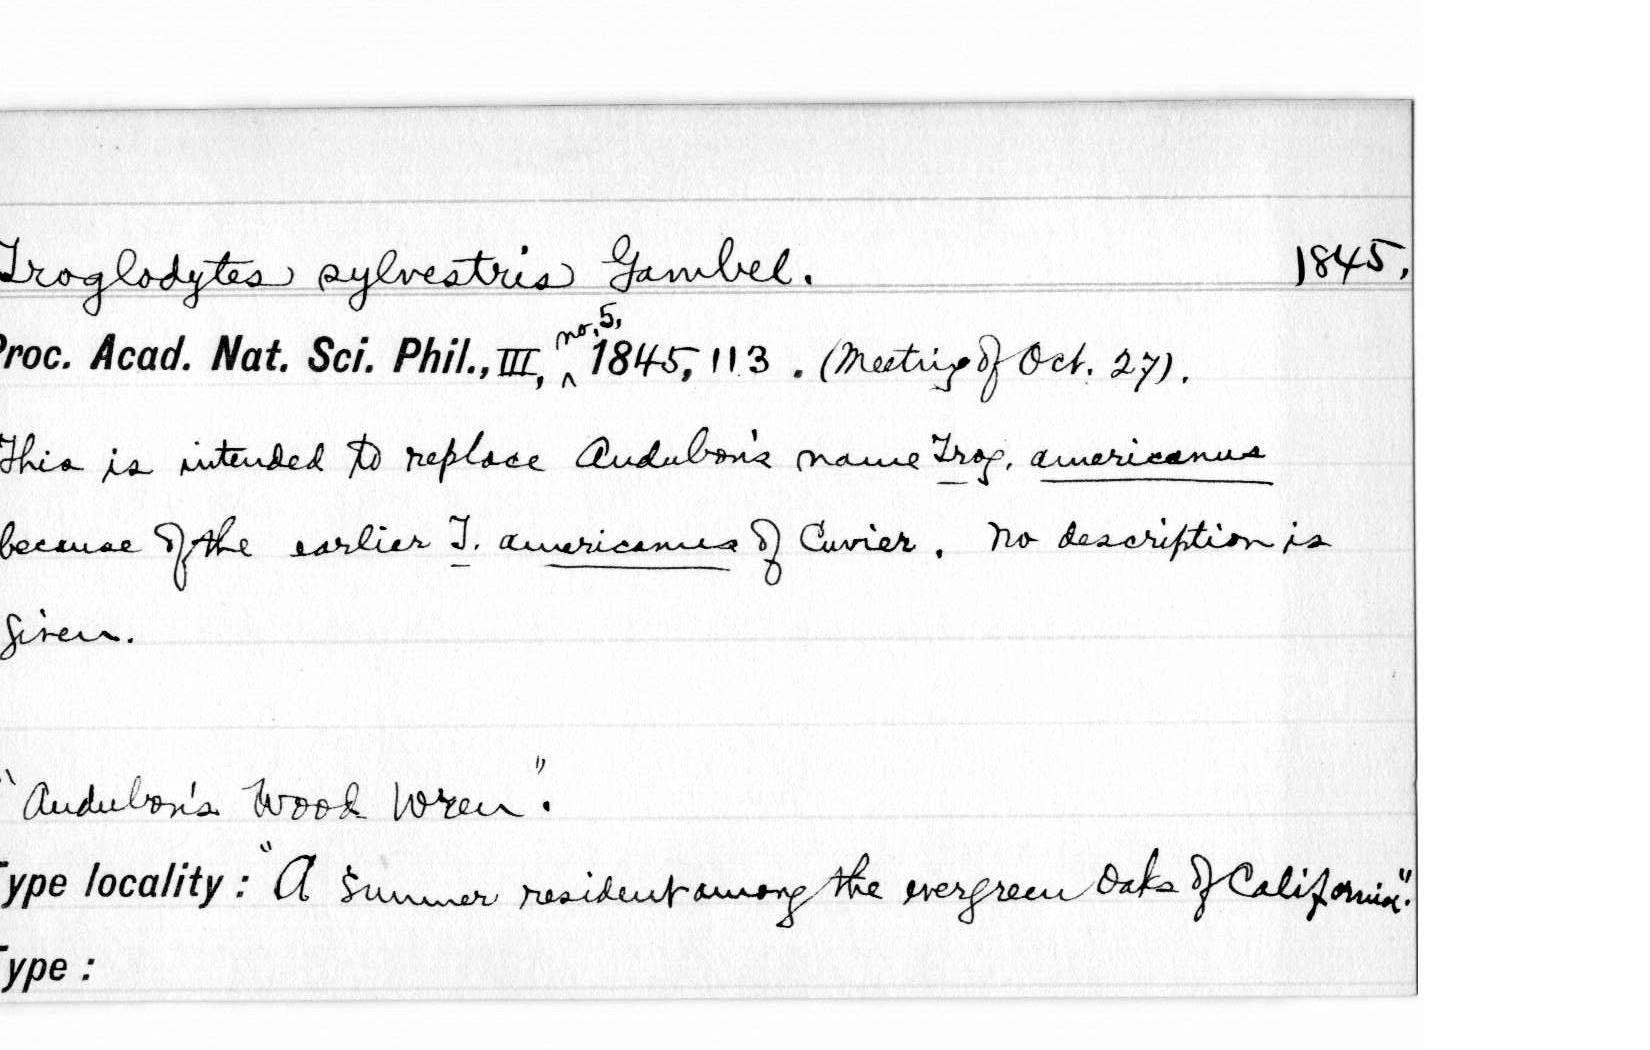 Troglodytes sylvestris Gambel. 1845.
Proc. Acad. Nat. Sci. Phil., III, no. 5, 1845, 113. (Meeting of Oct. 27).
This is intended to replace Audubon's name Trog. americanus
because of the earlier T. americanus of Cuvier. No description is
given.
"Audubon's Wood Wren".
Type locality: "A summer resident among the evergreen oaks of California".
Type: